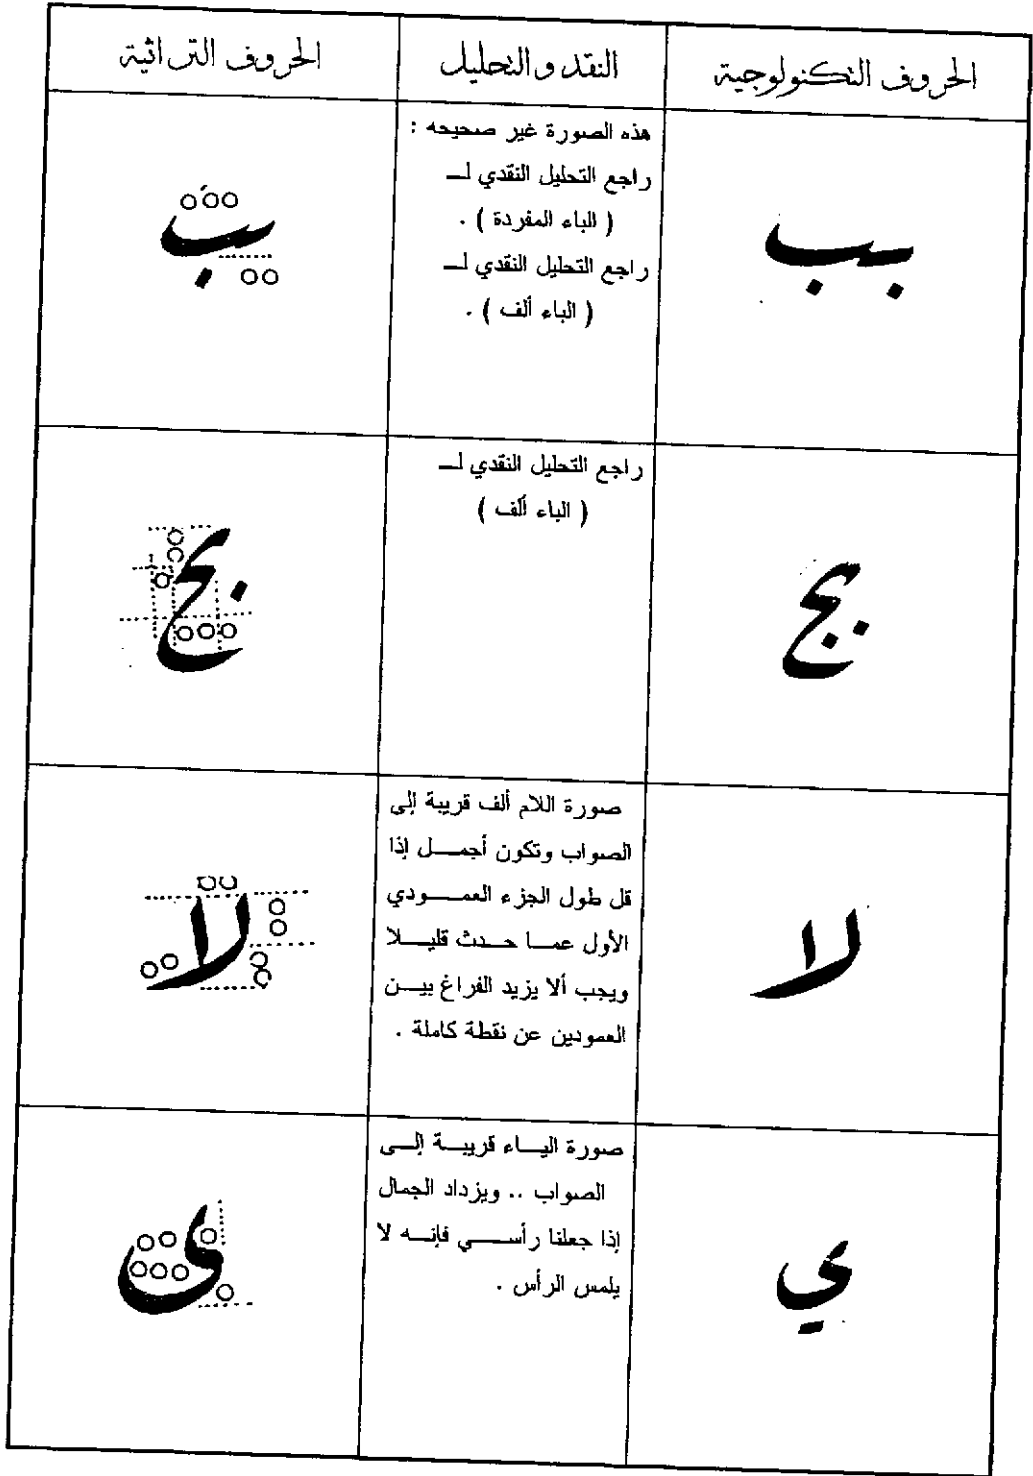 الحروف التكنولوجية
النقد والتحليل
الحروف التراثية
بب
هذه الصورة غير صحيحه :
راجع التحليل النقدي لـــ
( الباء المفردة ) .
راجع التحليل النقدي لـــ
( الباء ألف ) .
بب
بج
راجع التحليل النقدي لـــ
( الباء ألف )
بح
لا
صورة اللام ألف قريبة إلى
الصواب وتكون أجمـــل إذا
قل طول الجزء العمـــودي
الأول عمـــا حـــدث قليـــلا
ويجب ألا يزيد الفراغ بيـــن
العمودين عن نقطة كاملة .
لا
ي
صورة اليـــاء قريبـــة إلـــى
الصواب .. ويزداد الجمال
إذا جعلنا رأســـي فإنـــه لا
يلمس الرأس .
ى